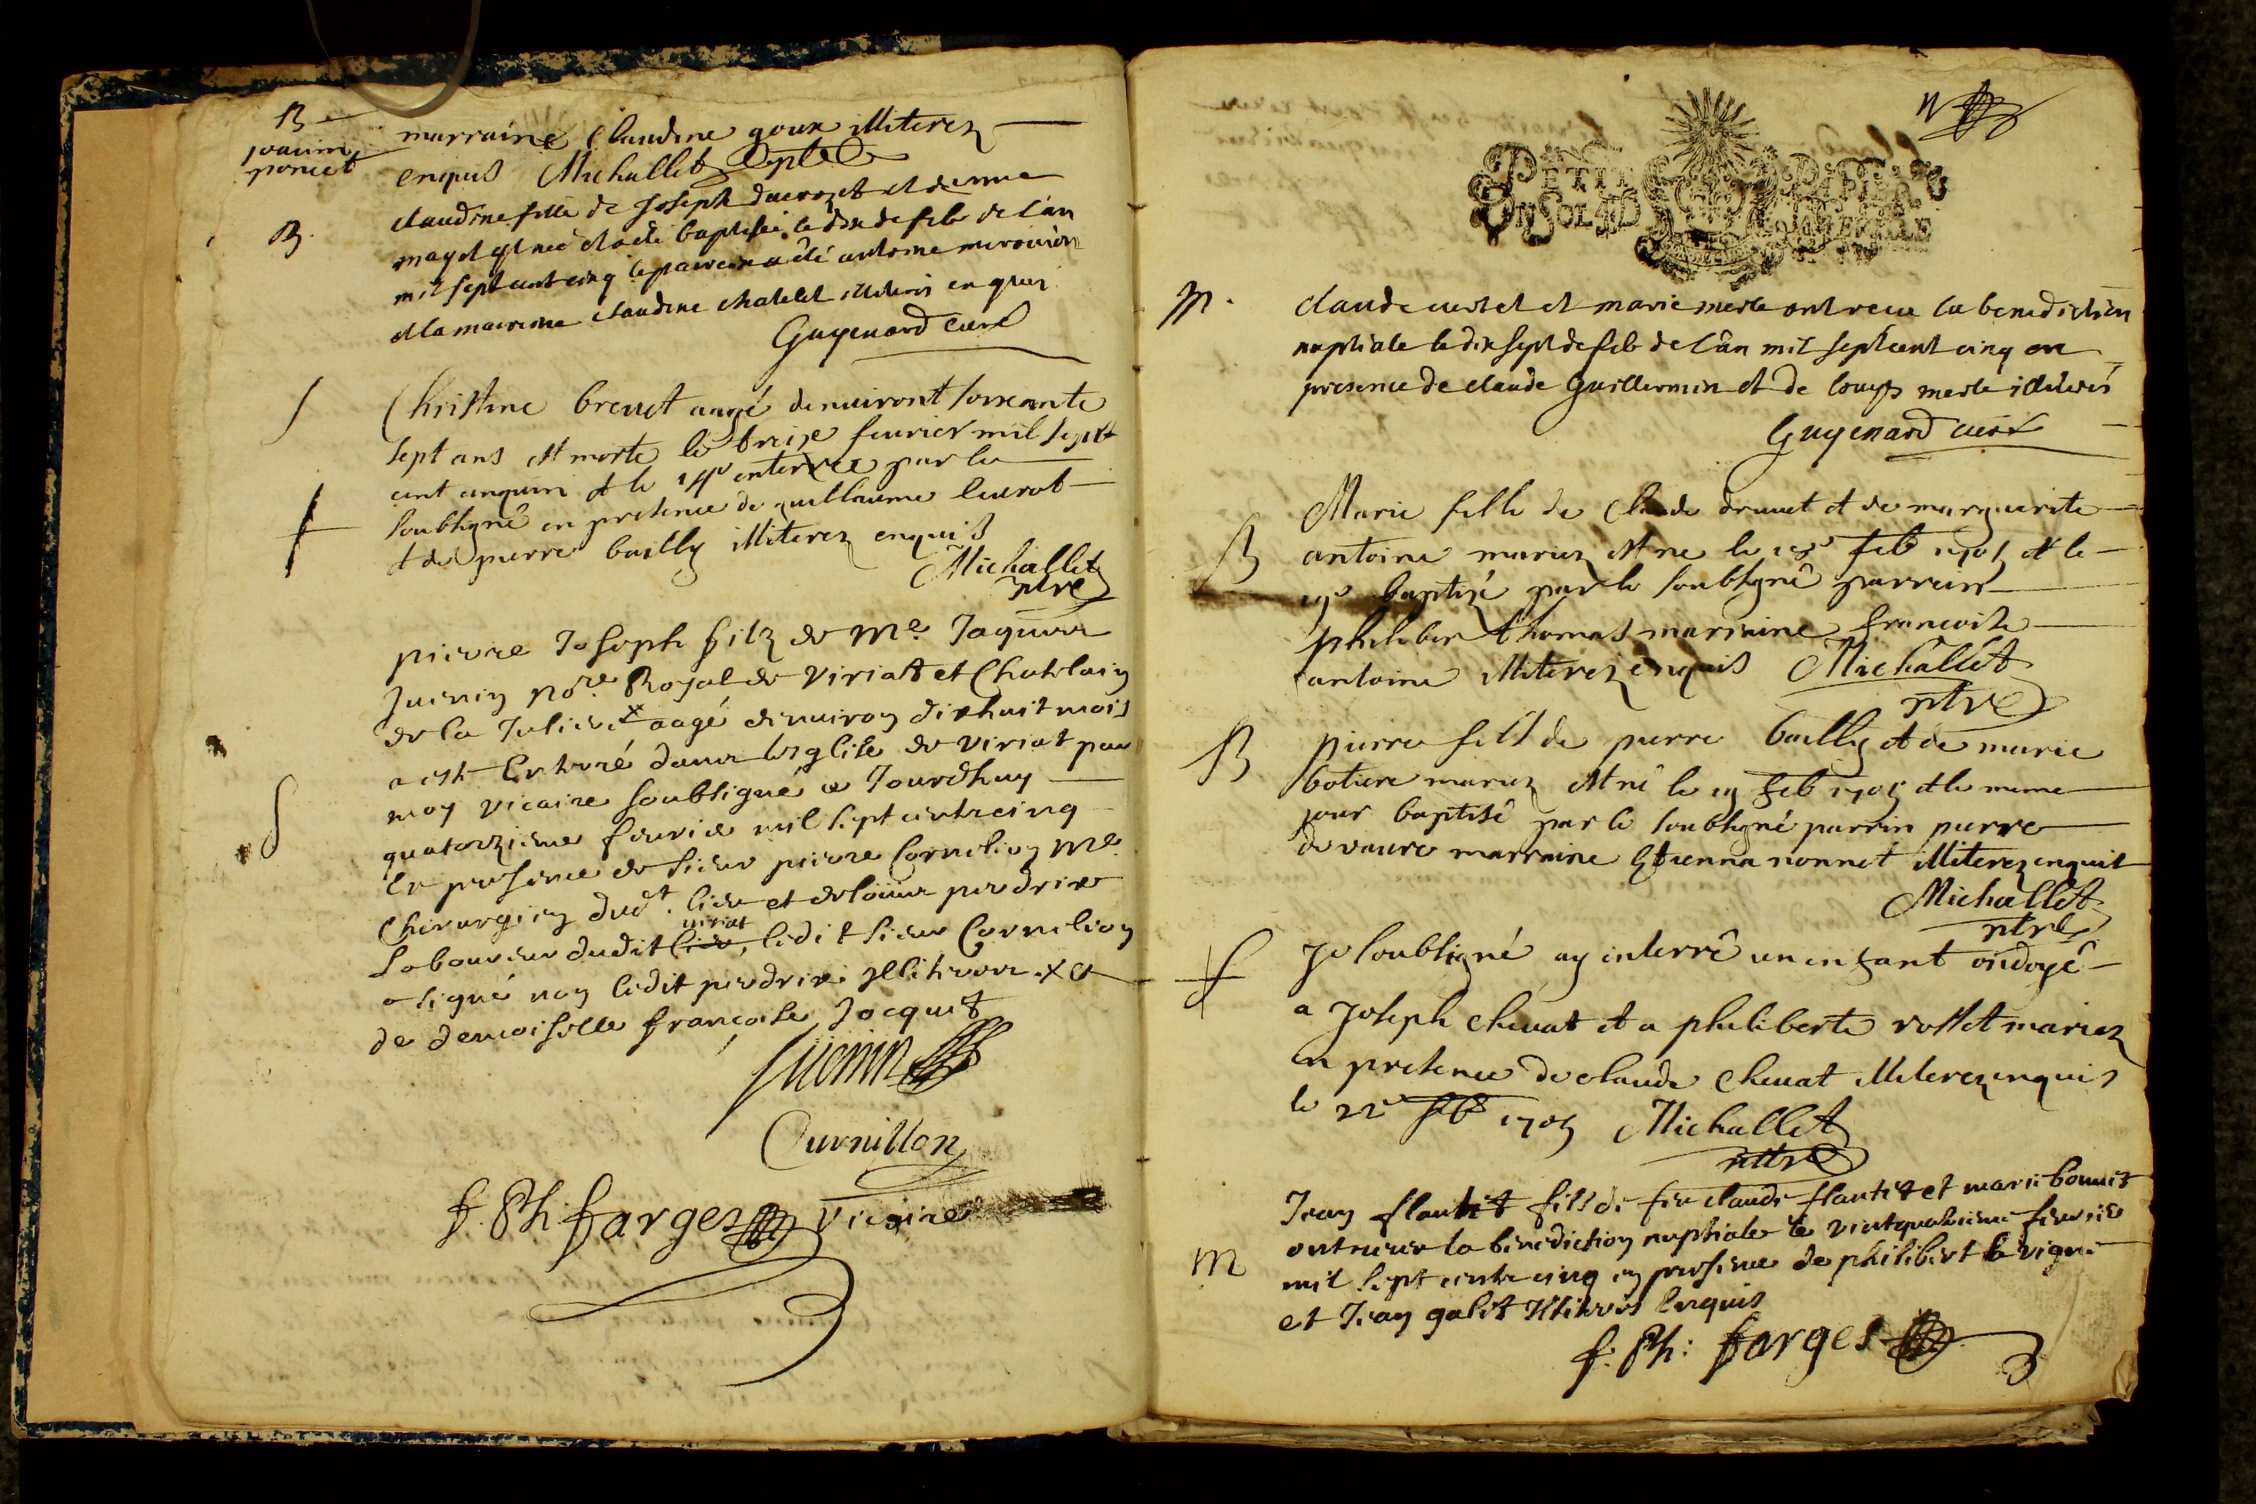 B
joacim
poncet
marraine Claudine goux illiterez
enquis Michallet ptre
B
claudine fille de Joseph ducrozet et denne
mayet est neé et a eté baptiseé le dix de feb de l'an
mil sept cent cinq le parrein a eté antoine
et la marreine claudine chatelet illiterés enquis
Guyenard curé
S
Christine brevet aagé denuiront soixeante
sept ans est morte le treize feurier mil sept
cent cinq et le 14e enterreé par le
soubsigné en presence de guillaume
et de pierre bailly illiterez enquis
Michallet
ptre
pierre Joseph filz de Me. Jaquine
Juenin nore. Royal de Viriat et Chatelain
de la x aagé denuiron dixhuit mois
a esté Enterré dans lesglise de viriat par
moy vicaire soubsigné ce Jourdhuy
S
quatorzieme feurier mil sept cents cinq
En presence de sieur pierre Cornelion Me.
Chirurgien dudt. lieu et de perdrix
laboureur dudit lieu, viriat ledit sieur Cornelion
a signé non ledit perdrix Illiteré x et
de demoiselle françoise Jocquet
Juenin
Curnillon
f. Ph: farges vicaire
PETIT PAPIER
UN SOL 4D LA FEUILLE
M.
claude et marie merle ont receu la benediction
nuptiale le dix sept de feb de l'an mil sept cent cinq en
presence de claude Guillermin et de louys merle illiterés
Guyenard curé
B
Marie fille de Claude druuet et de marguerite
antoine mariez est ne le 18e feb 1705 et le
19e baptizé par le soubsigné parrein
philiber thomas marraine francoise
antoine illiterez enquis Michallet
ptre
B
pierre fils de pierre bailly et de marie
botiere mariez est né le 19 feb 1705 et le meme
jour baptisé par le soubsigné parrin pierre
de vaure marraine Etienna nonnet illiterez enquis
Michallet
ptre
Je soubsigné ay enterré un enfant ondoyé
a Joseph cheuat et a philiberte rosset mariez
en presence de claude cheuat illiterez enquis
le 22e feb 1705 Michallet
ptre
M
Jean flautet fils de feu claude flautet et marie bonnet
ont receu la benediction nuptiale le vintquatrieme feurier
mil sept cents cinq en presence de philibert la vigne
et Jean galet Illiterés Enquis
f: Ph: farges